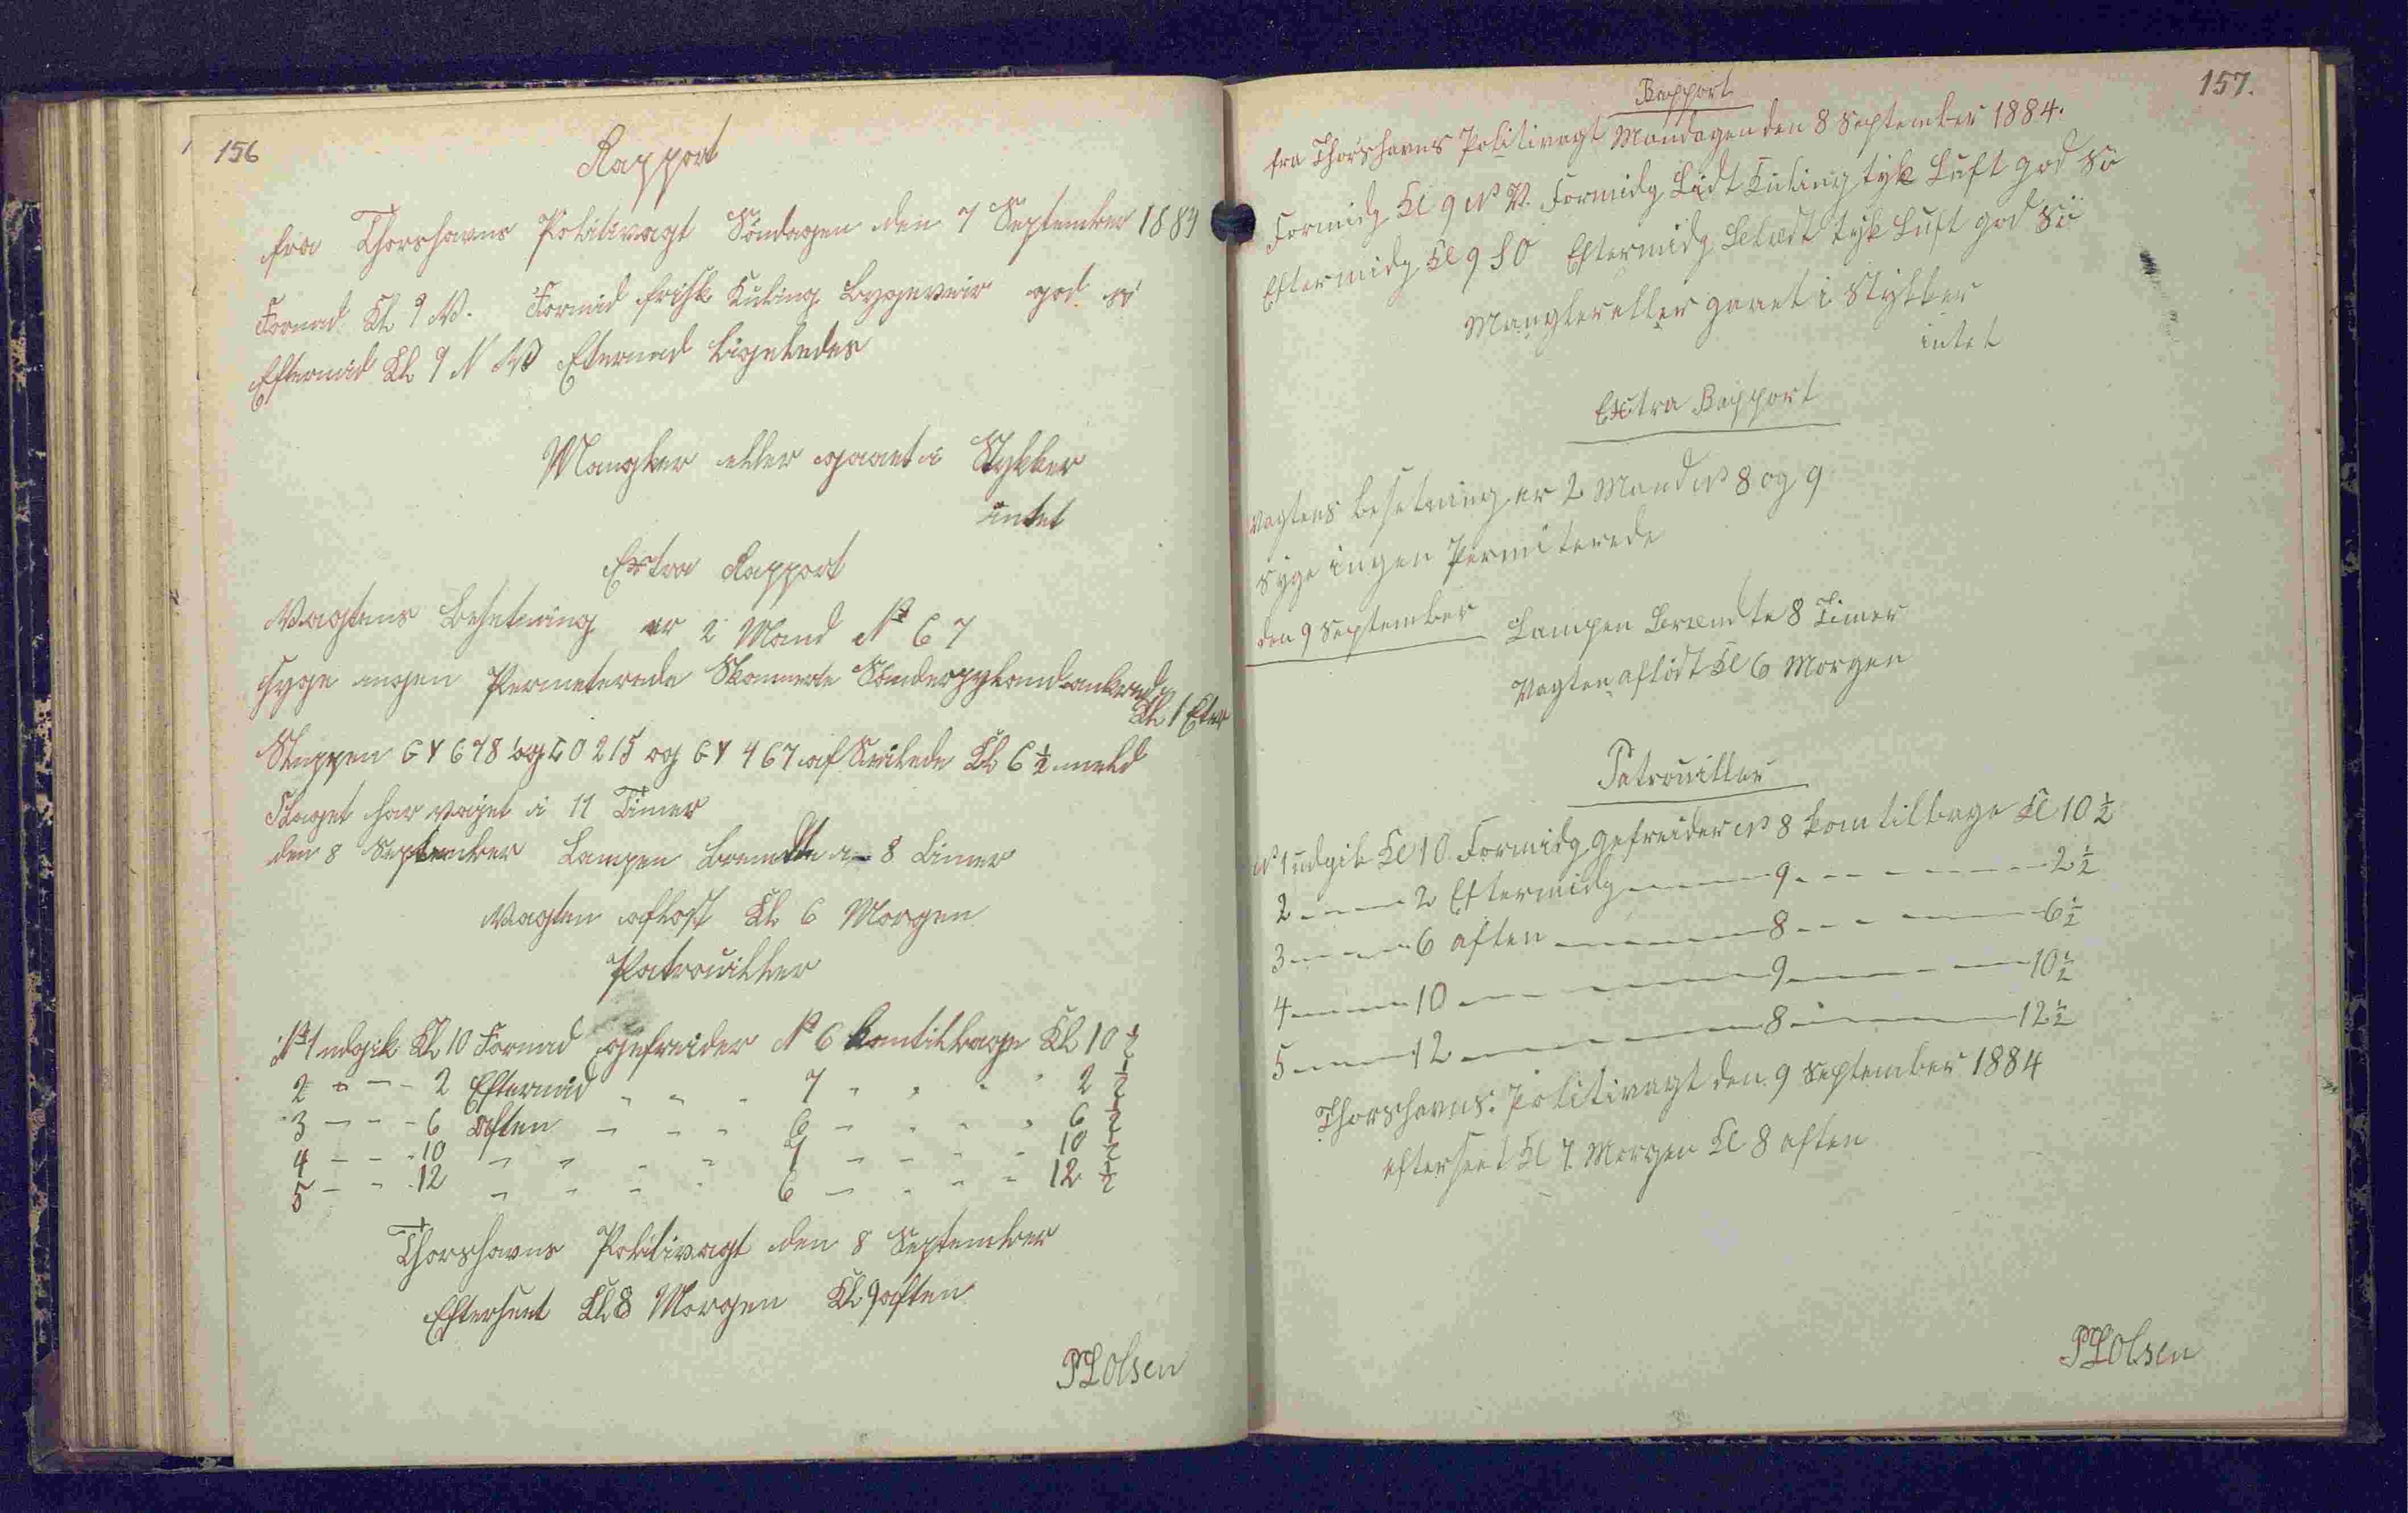 156
Rapport
fra Thorshavns Politivagt Söndagen den 7 September 1884
Formd. Kl 9 V. Formid frisk Kuling Bygeveir god sö
Eftermid Kl 9 N V Eftermd ligeledes
Mangler eller gaaet i Stykker
intet
Extra Rapport
Vagtens Besetning er 2 Mand № 6 7
syge ingen Permeterede Skonnerte ankrede
Kl 1 Efter
Sluppen GY 678 og LO 215 og GY 467 af Seilede Kl 6 ½
Flaget har vajet i 11 Timer
den 8 September Lampen brendte i 8 Timer
Vagten aflost Kl 6 Morgen
Patrouiller
№ 1 udgik Kl 10 Formd gefreider № 6 kom tilbage Kl 10 ½
2 - - - 2 Eftermid " " " 7 " " " " 2 ½
3 - - - 6 aften - - - - 6 - - - - 6 ½
4 - - - 10 - - - - 7 - - - - 10 ½
5 - - - 12 - - - - 6 - - - - 12 ½
Thorshavns Politivagt den 8 September
Efterseet Kl 8 Morgen Kl 9 aften
PL Olsen
157.
Rapport
fra Thorshavns Politivagt Mandagen den 8 September 1884.
Formidg Kl 9 N V. Formidg Lidt Kuling tyk Luft god Sö
Eftermidg Kl 9 S O Eftermidg tyk Luft god Sö
Mangler eller gaaet i Stykker
intet
Extra Rapport
Vagtens Besetning er 2 Mand № 8 og 9
syge ingen Permiterede
den 9 September Lampen Brændte 8 Timer
Vagten aflödt Kl 6 Morgen
Patrouiller
№ 1 udgik Kl 10 Formidg gefreider № 8 kom tilbage Kl 10 ½
2 - - - - 2 Eftermidg - - - - 9 - - - - 2 ½
3 - - - - 6 aften - - - - 8 - - - - 6 ½
4 - - - - 10 - - - - 9 - - - - 10 ½
5 - - - - 12 - - - - 8 - - - - 12 ½
Thorshavns Politivagt den 9 September 1884
efterseet Kl 7 Morgen Kl 8 aften
PL Olsen